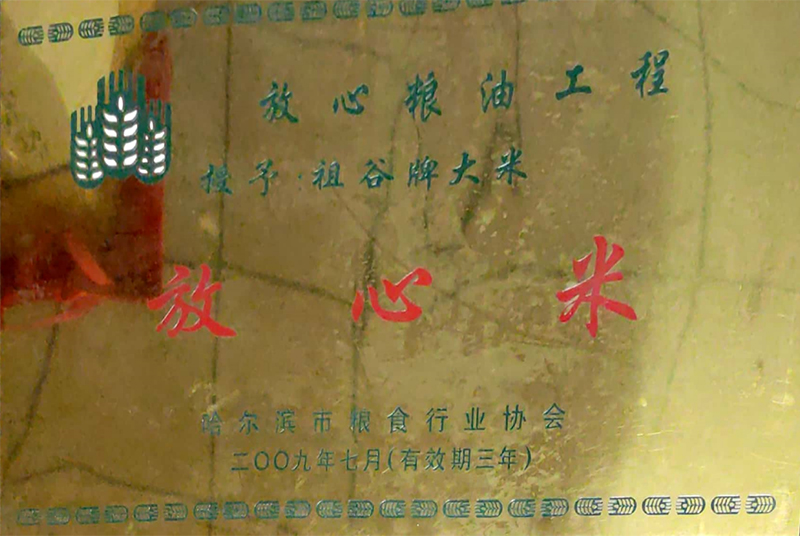 放心粮油工程
授予:祖谷牌大米
放心米
哈尔滨市粮食行业协会
二〇〇九年七月(有效期三年)